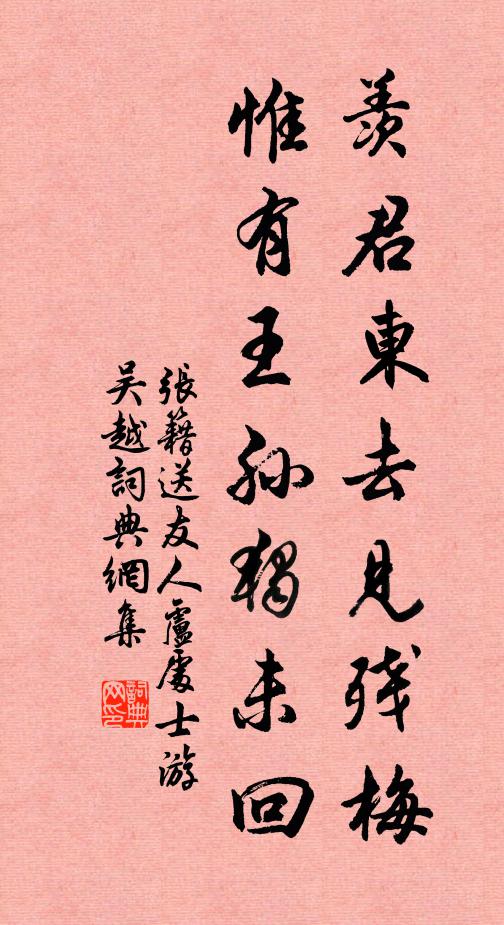 羨君東去見残梅
惟有王孙獨未回
張籍送友人盧處士游
吴越詞典網集
詞典网印